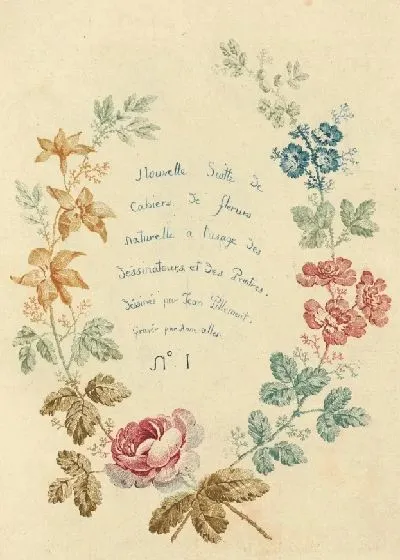 Nouvelle Suitte de
Cahiers de fleurs
naturelle a l'usage des
Dessinateurs et des Peintres.
Dessinés par Jean Pillement.
Gravée par Anne allen
N° 1